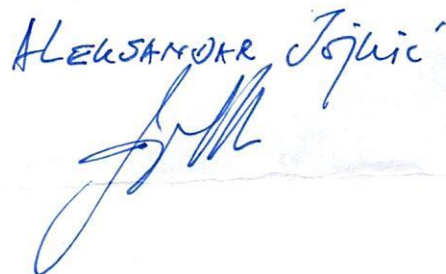 ALEKSANDAR Jojkić